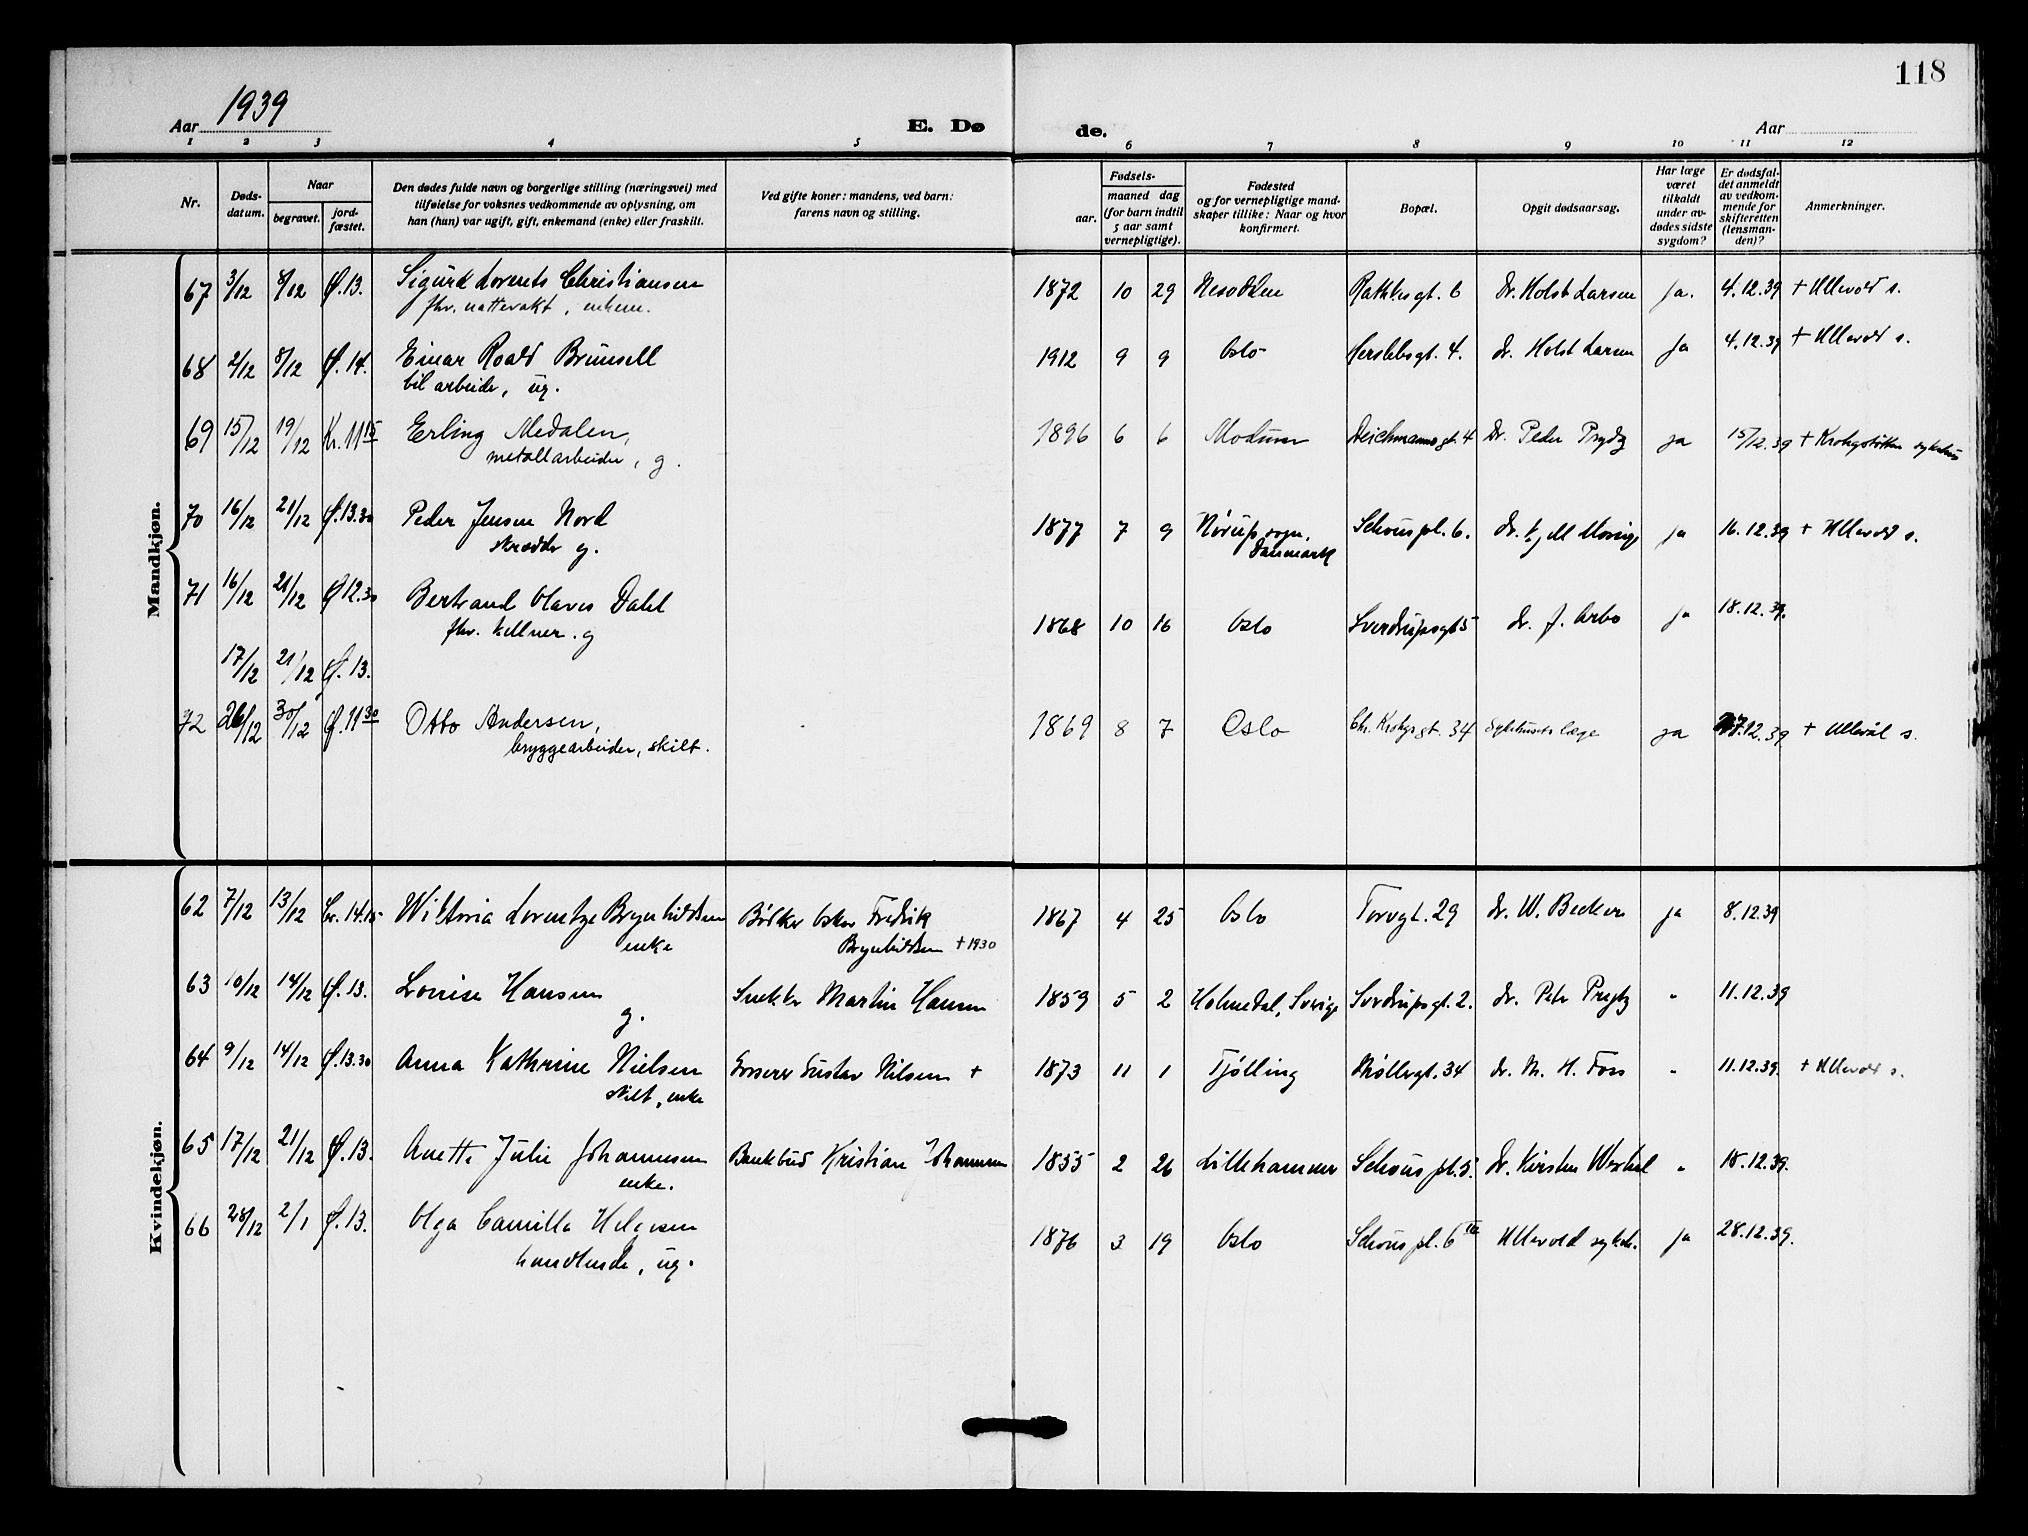 118
Aar 1939
E. Dø de.
Aar
1 2 3 4 5 6 7 8 9 10 11 12
Nr.
Døds-
datum.
Naar
begravet.
jord-
fæstet.
Den dødes fulde navn og borgerlige stilling (næringsvei) med
tilføielse for voksnes vedkommende av oplysning, om
han (hun) var ugift, gift, enkemand (enke) eller fraskilt.
Ved gifte koner: mandens, ved barn:
farens navn og stilling.
Fødsels-
aar.
maaned dag
(for barn indtil
5 aar samt
vernepligtige).
Fødested
og for vernepligtige mand-
skaper tillike: Naar og hvor
konfirmert.
Bopæl.
Opgit dødsaarsag.
Har læge
været
tilkaldt
under av-
dødes sidste
sygdom?
Er dødsfal-
det anmeldt
av vedkom-
mende for
skifteretten
(lensman-
den)?
Anmerkninger.
Mandkjøn.
67 3/12 8/12 Ø.13. Sigurd Lorents Christiansen 1872 10 29 Nesodden Rathkesgt. 6 Dr. Holst Larsen ja. 4.12.39 + Ullevold s.
fhv. nattevakt, enkem.
68 2/12 8/12 Ø.14. Einar Roald Brunsell 1912 9 9 Oslo Herslebsgt. 4. Dr. Holst Larsen ja 4.12.39 + Ullevold s.
bilarbeider, ug.
69 15/12 19/12 Kr. 11 15 Erling Medalen, 1896 6 6 Modum Deichmannsgt. 4 Dr. Peder Prydz ja 15/12.39 + Krohgstøtten sykehus
metallarbeider, g.
70 16/12 21/12 Ø.13.30 Peder Jensen Nord 1877 7 9 Nørup sogn, Schouspl. 6. Dr. Kjell ja 16.12.39 + Ullevold s.
skredder g. Danmark
71 16/12 21/12 Ø 12.30 Bertrand Olaves Dahl 1868 10 16 Oslo Sverdrupsgt 5 Dr. J. Arbo ja 18.12.39.
fhv. kellner. g
17/12 21/12 Ø. 13.
72 26/12 30/12 Ø. 11 30 Otto Andersen, 1869 8 7 Oslo Chr. Krohgs gt. 34 Sykehusets læge ja 27.12.39 + Ullevål s.
bryggearbeider, skilt.
Kvindekjøn.
62 7/12 13/12 Cr. 14.15 Viktoria Lorentze Brynhildsen Bødker Oskar Fredrik 1867 4 25 Oslo Torvgt. 29 Dr. W. Becker ja 8.12.39
enke Brynhildsen + 1930
63 10/12 14/12 Ø.13. Lovise Hansen Snekker Martin Hansen 1859 5 2 Holmedal, Sverige Sverdrupsgt. 2. Dr. Peder Prydz " 11.12.39
g.
64 9/12 14/12 Ø.13.30 Anna Kathrine Nielsen Grosserer Gustav Nilsen + 1873 11 1 Tjølling Møllergt. 34 Dr. M. H. Foss " 11.12.39. + Ullevold s.
skilt, enke
65 17/12 21/12 Ø.13. Anette Julie Johannesen Bankbud Kristian Johannesen 1855 2 26 Lillehammer Schous pl. 5. Dr. Kirsten " 18.12.39.
enke.
66 28/12 2/1 Ø.13. Olga Camilla Helgesen 1876 3 19 Oslo Schous pl. 6 III Ullevold sykeh. ja 28.12.39.
handlende, ug.